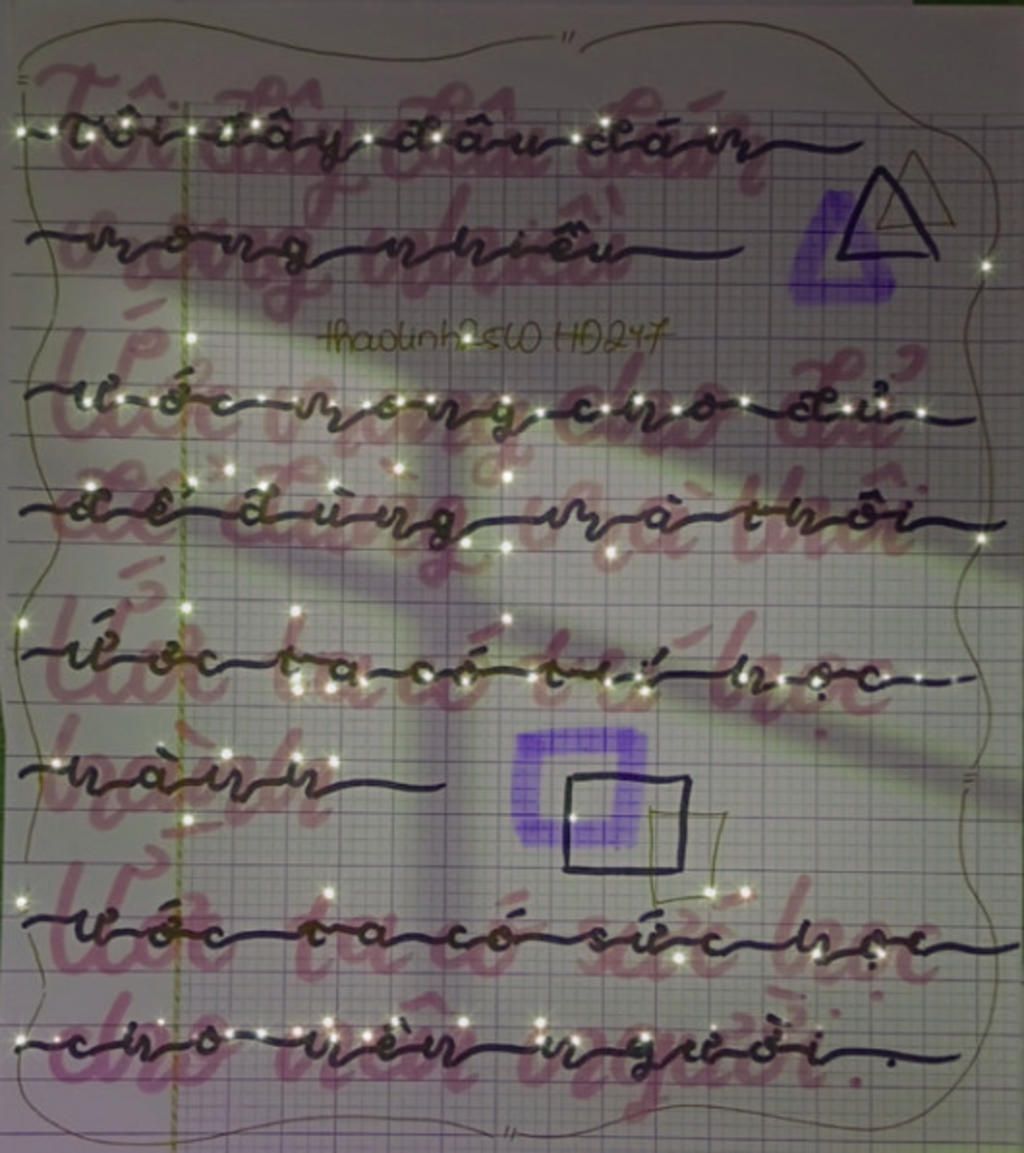 Tôi đây đâu dám
mong nhiều
thaolinh2slO HĐ247
Ước mong cho đủ
để dùng mà thôi
Ước ta có trí học
hành
Ước ta có sức học
cho nên người.